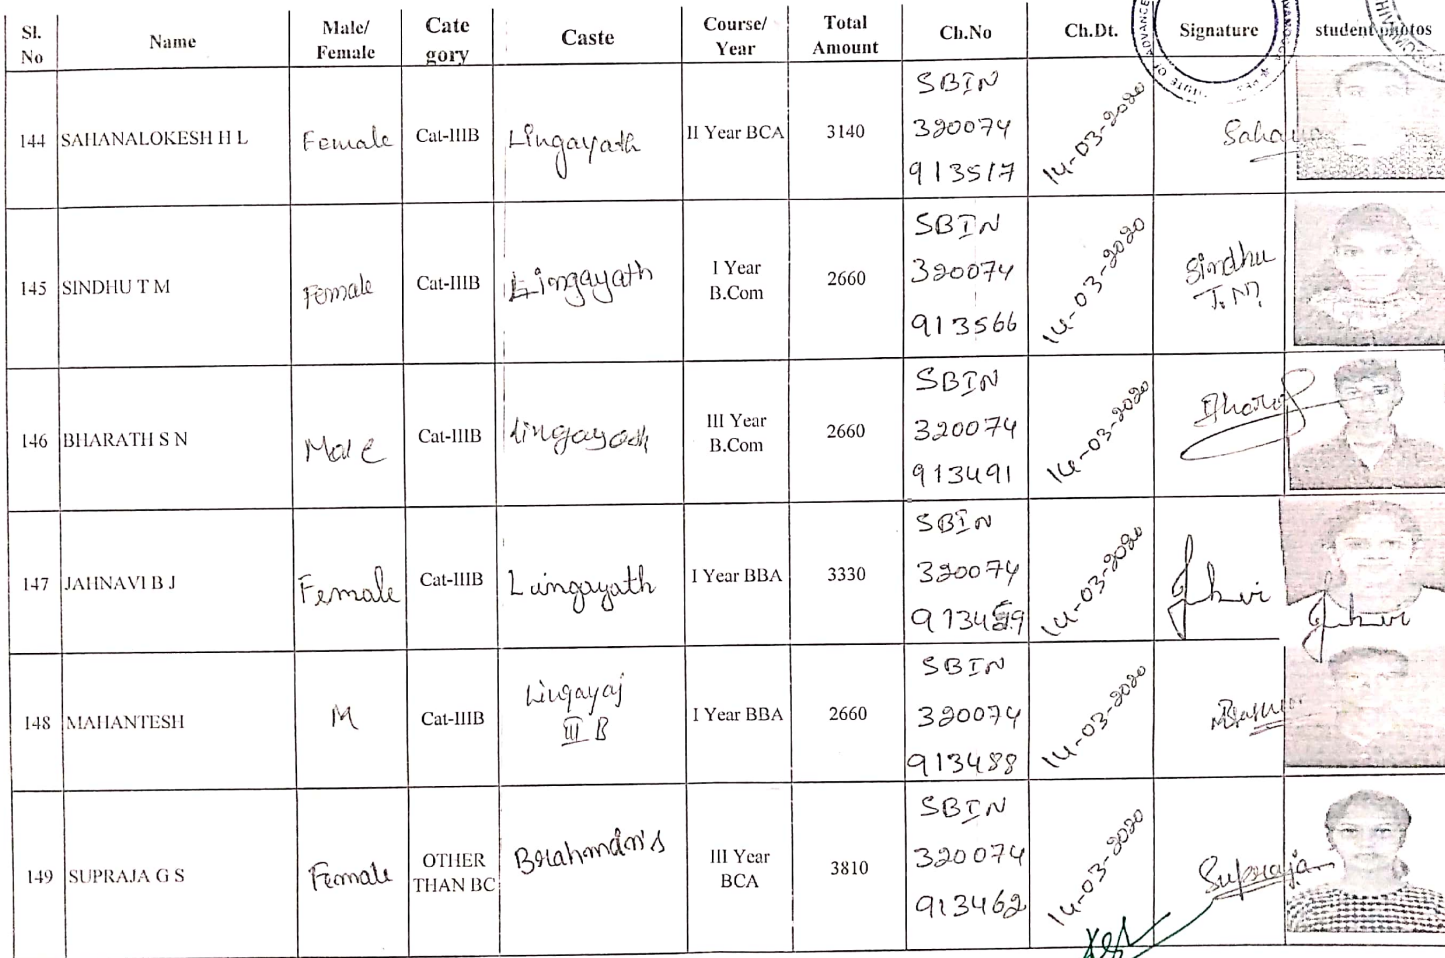 Sl. No Name Male/ Female Cate gory Caste Course/ Year Total Amount Ch.No Ch.Dt. Signature student photos
144 SAHANALOKESH H L Female Cat-IIIB Lingayath II Year BCA 3140 SBIN 320074 913517 14-03-2020 Sahana
145 SINDHU T M Female Cat-IIIB Lingayath I Year B.Com 2660 SBIN 320074 913566 14-03-2020 Sindhu T.M.
146 BHARATH S N Male Cat-IIIB Lingayath III Year B.Com 2660 SBIN 320074 913491 14-03-2020 Bharat
147 JAHNAVI B J Female Cat-IIIB Lingayath I Year BBA 3330 SBIN 320074 14-03-2020
148 MAHANTESH M Cat-IIIB Lingayaj III B I Year BBA 2660 SBIN 320074 913488 14-03-2020
149 SUPRAJA G S Female OTHER THAN BC Brahmin's III Year BCA 3810 SBIN 320074 913462 14-03-2020 Supraja